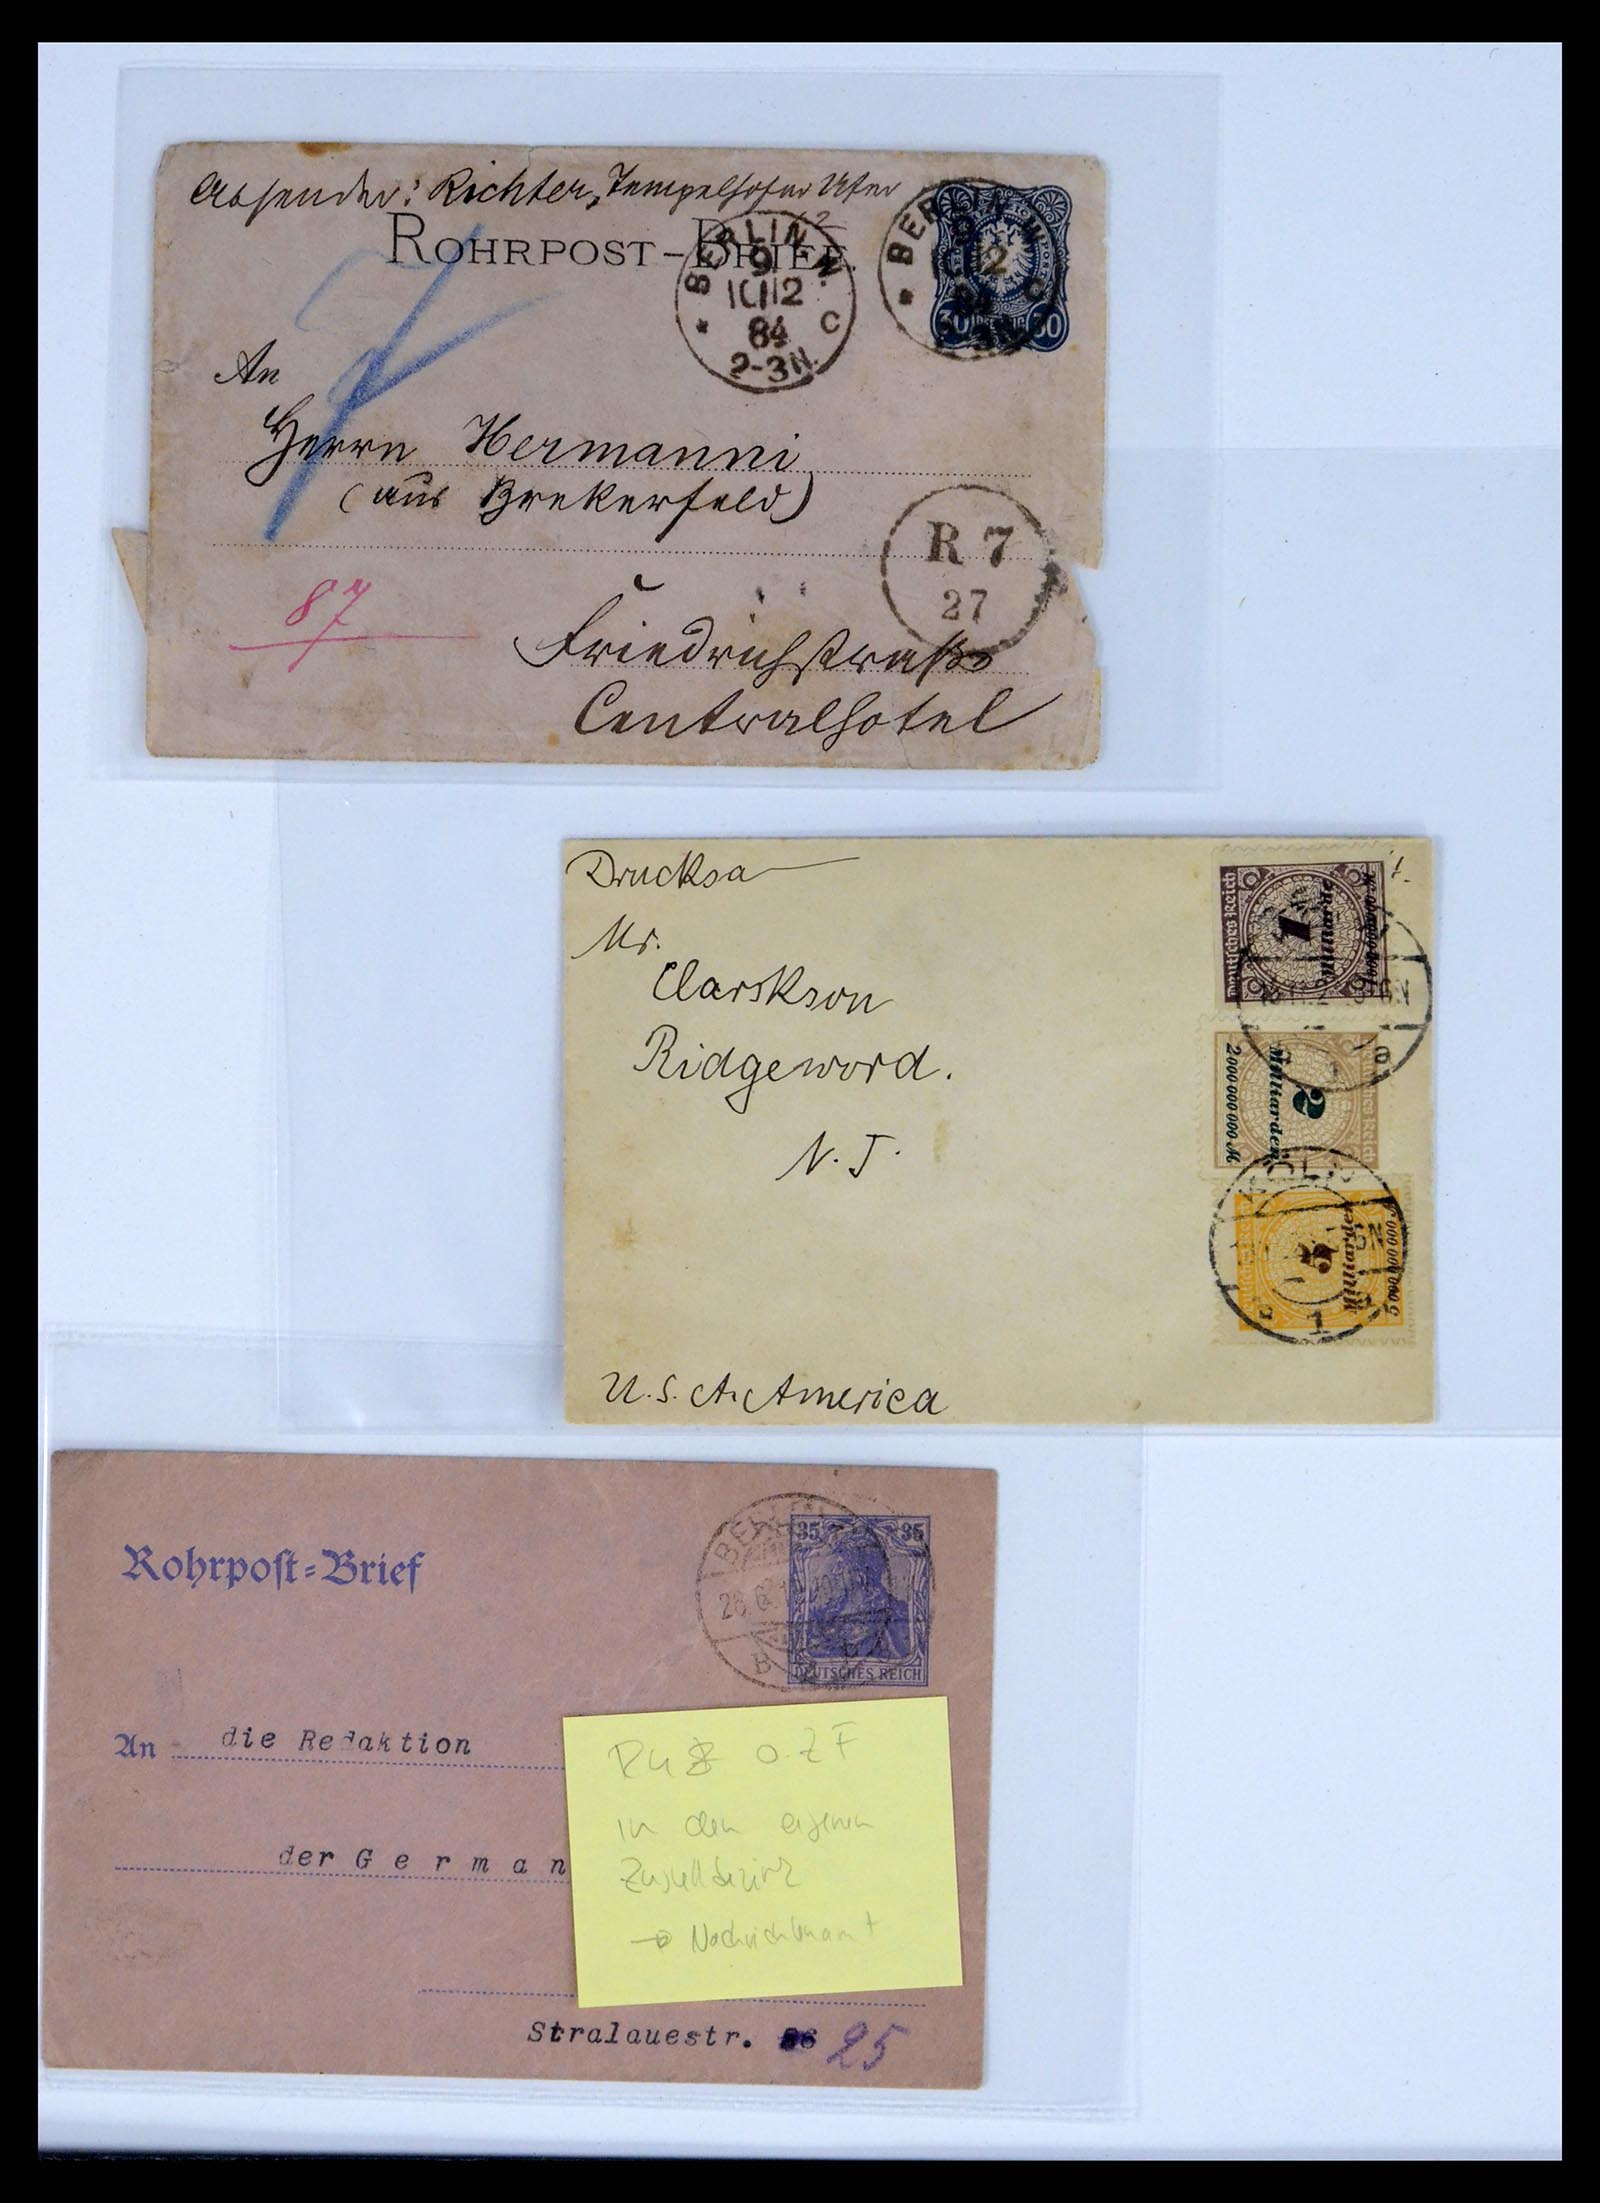 Absender: Richter, Tempelhofer Ufer
ROHRPOST-BRIEF.
BERLIN
9
10 12
84
2-3N
C
BERLIN W
9
12
84
C
30 PFENNIG 30
An
Herrn Hermanni
(aus Brekerfeld)
R 7
27
87
Friedrichstraße
Centralhotel
Drucksa
Mr.
Clarskson
Ridgeword.
N. J.
U.S.A. America
Deutsches Reich
1
Milliarde
a
2
Milliarden
2000000000 M
5
Milliarden
5000000000 M
1
Rohrpost-Brief
35 35
DEUTSCHES REICH
BERLIN
An die Redaktion
der German
Stralauestr. 25
in den eigenen
Zustellbezirk
→ Nachrichtenamt